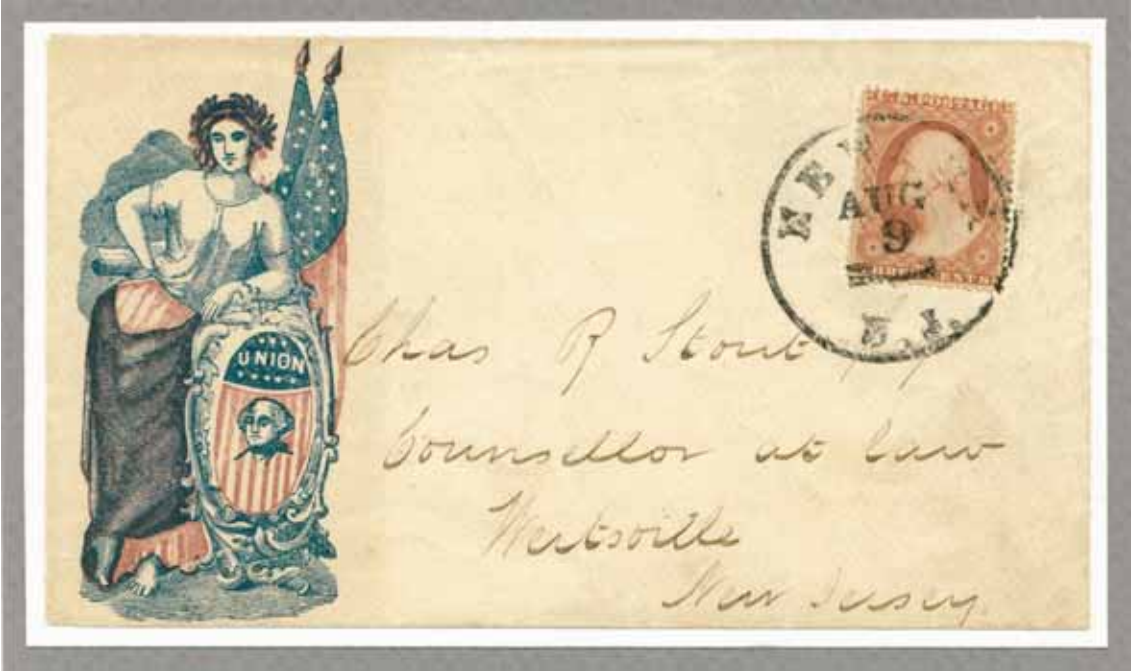 UNION
AUG
9
N.J.
Chas R Stout
Counsellor at law
Wertsville
New Jersey.